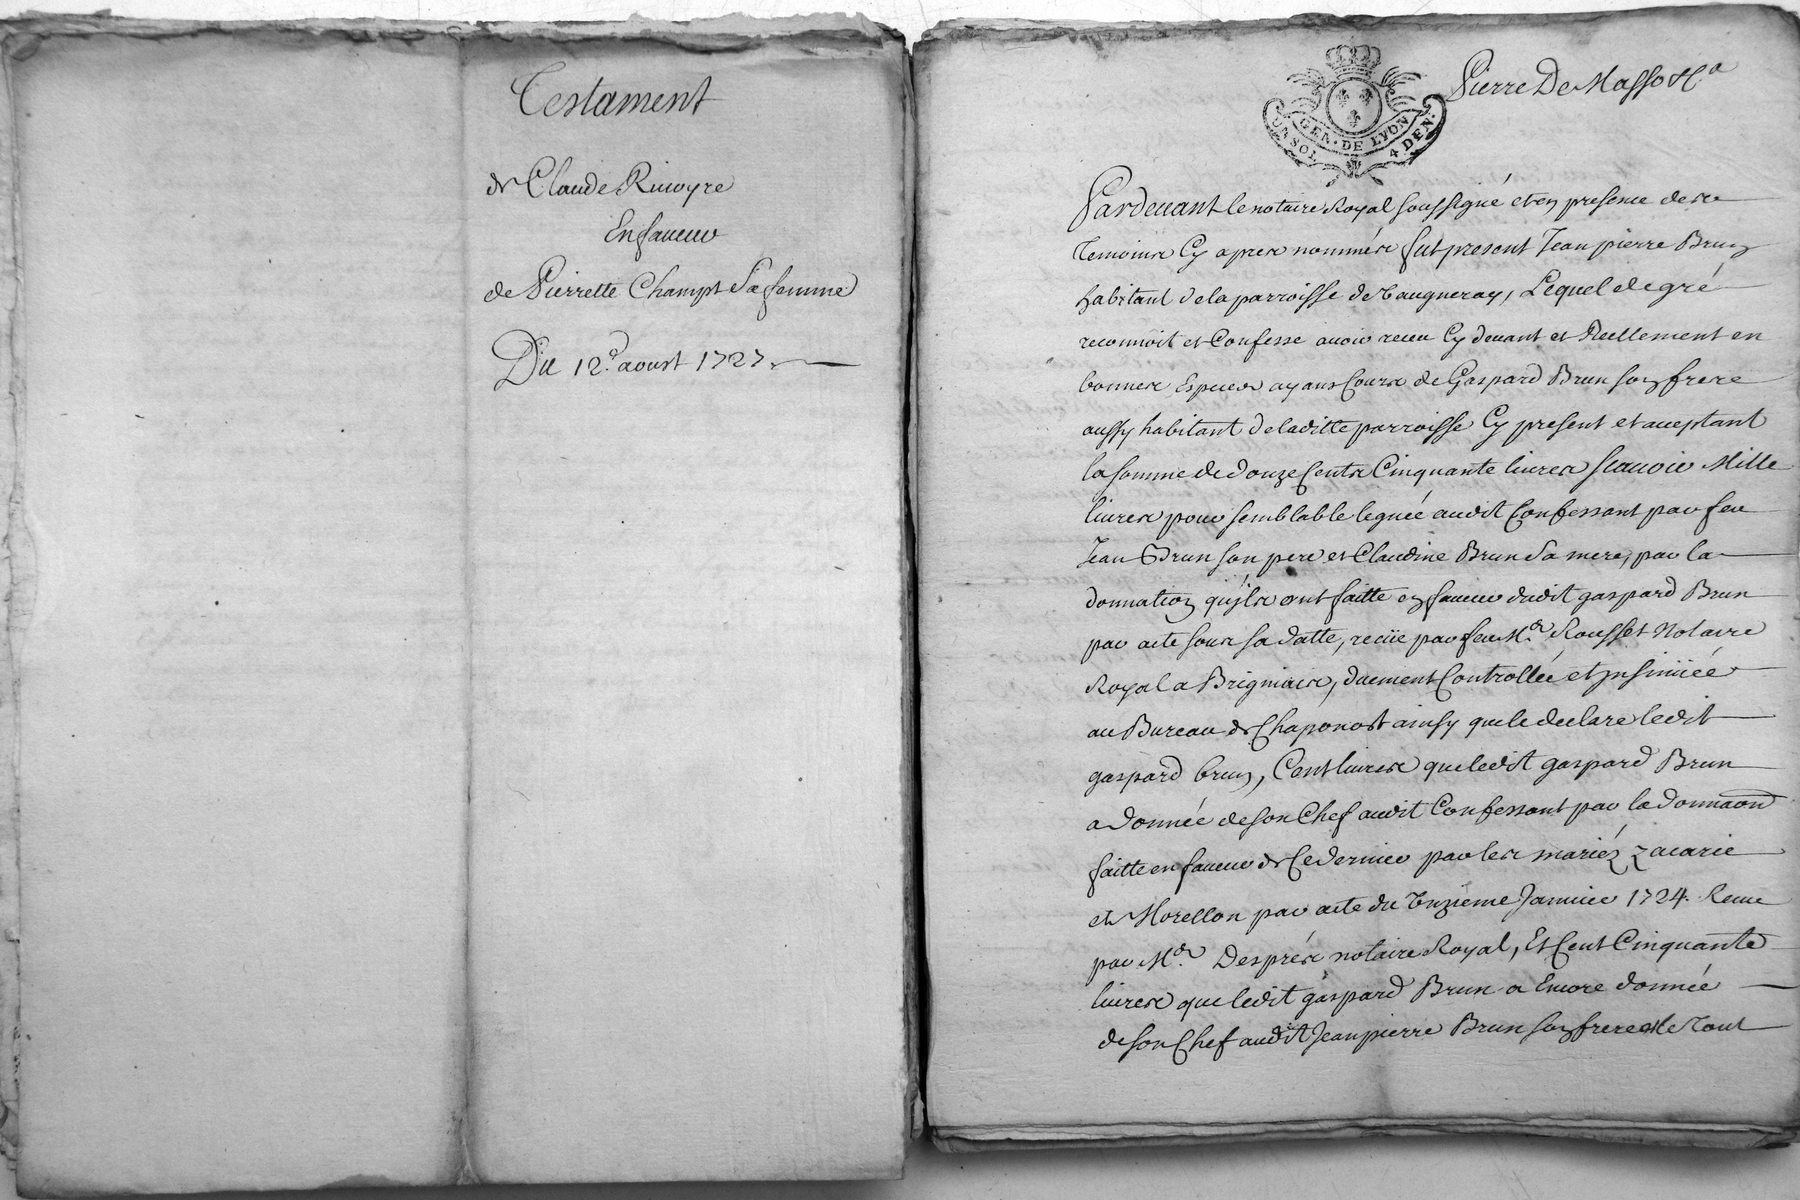 Testament
de Claude Rivoyre
En faueur
de Pierrette Champt Sa femme
Du 12e. aoust 1727.
Pierre De Masso
GEN. DE LYON
UN SOL 4 DEN.
Pardeuant le notaire Royal soussigné et en presence des
Temoins Cy apres nommés fut present Jean pierre Brun
habitant de la parroisse de Vaugneray, Lequel de gré
reconnoit et Confesse auoir receu Cy deuant et Reellement en
bonnes Especes ayans Cours de Gaspard Brun son frere
aussy habitant de laditte parroisse Cy present et aceptant
la somme de douze Cents Cinquante liures scauoir Mille
liures pour semblable legueé audit Confessant par feu
Jean Brun son pere et Claudine Brun Sa mere, par la
donnation qu'ils ont faitte en faueur dudit gaspard Brun
par acte sous sa datte, recüe par feu Me. Rousset Notaire
Royal a Brignais, duement Controllée et Insinüée
au Bureau de Chaponost ainsy que le declare ledit
gaspard brun, Cent liures que ledit gaspard Brun
a donnée de son Chef audit Confessant par la donnaon
faitte en faueur de Ce dernier par les mariéz Zacarie
et Morellon par acte du Onzieme Januier 1724. Receue
par Me. Desprès notaire Royal, Et Cent Cinquante
liures que ledit gaspard Brun a Encore donnée
de son Chef audit Jean pierre Brun son frere et le Tout